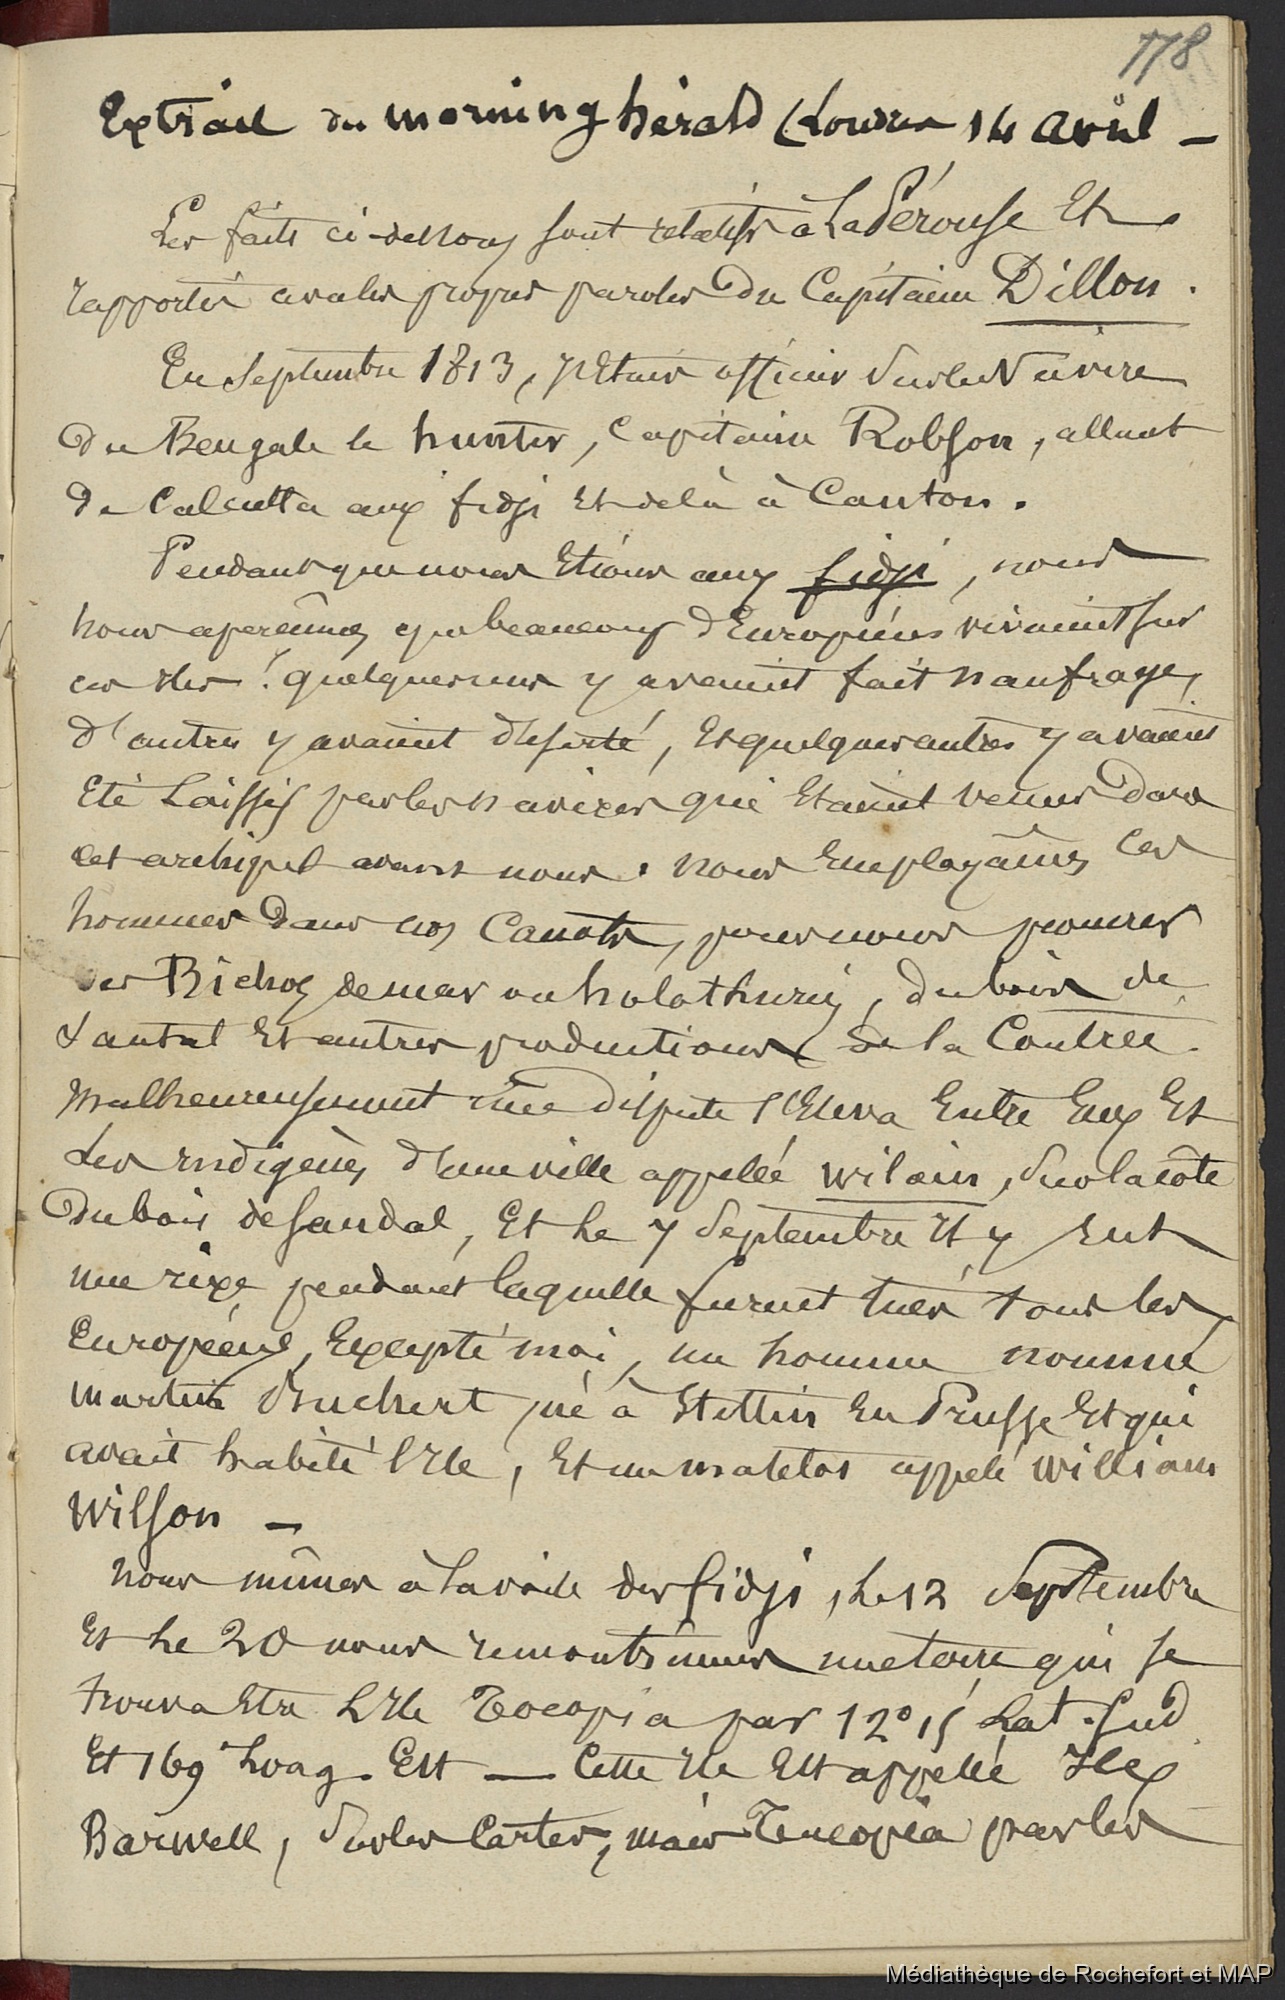 178
Extrait du Morning hérald (Londres 14 avril —
Les faits ci-dessous sont relatifs à La Pérouse Et
rapportés avec les propres paroles du Capitaine Dillon.
En Septembre 1813, j'Etais officier sur le Navire
du Bengale le hunter, Capitaine Robson, allant
de Calcutta aux fidji Et de là à Canton.
Pendant que nous Etions aux fidji, nous
nous aperçûmes que beaucoup d'Européens vivaient sur
ces Iles : quelques uns y avaient fait naufrage,
d'autres y avaient déserté, Et quelques autres y avaient
Eté Laissés par les navires qui Etaient venus dans
cet archipel avant nous. nous Employâmes Ces
hommes dans nos Canots, pour nous procurer
des Bichos de mar ou holothurie, du bois de
Santal Et autres productions de la Contrée.
Malheureusement une dispute s'Eleva Entre Eux Et
Les indigènes d'une ville appellée Wilain, sur la côte
du bois de Sandal, Et Le 7 Septembre il y Eut
une rixe pendant laquelle furent tués tous les
Européens, Excepté moi, un homme nommé
Martin Buchert, né à Stettin En Prusse Et qui
avait habité l'Ile, Et un matelot appelé William
Wilson —
nous mîmes à la voile des fidji, Le 12 Septembre
Et Le 20 nous rencontrâmes une terre qui se
trouva Etre L'Ile Tocopia par 12° 15' Lat. Sud
Et 169° Long. Est — Cette Ile Est appellée Iles
Barwell, sur les Cartes, mais Tucopia par les
Médiathèque de Rochefort et MAP